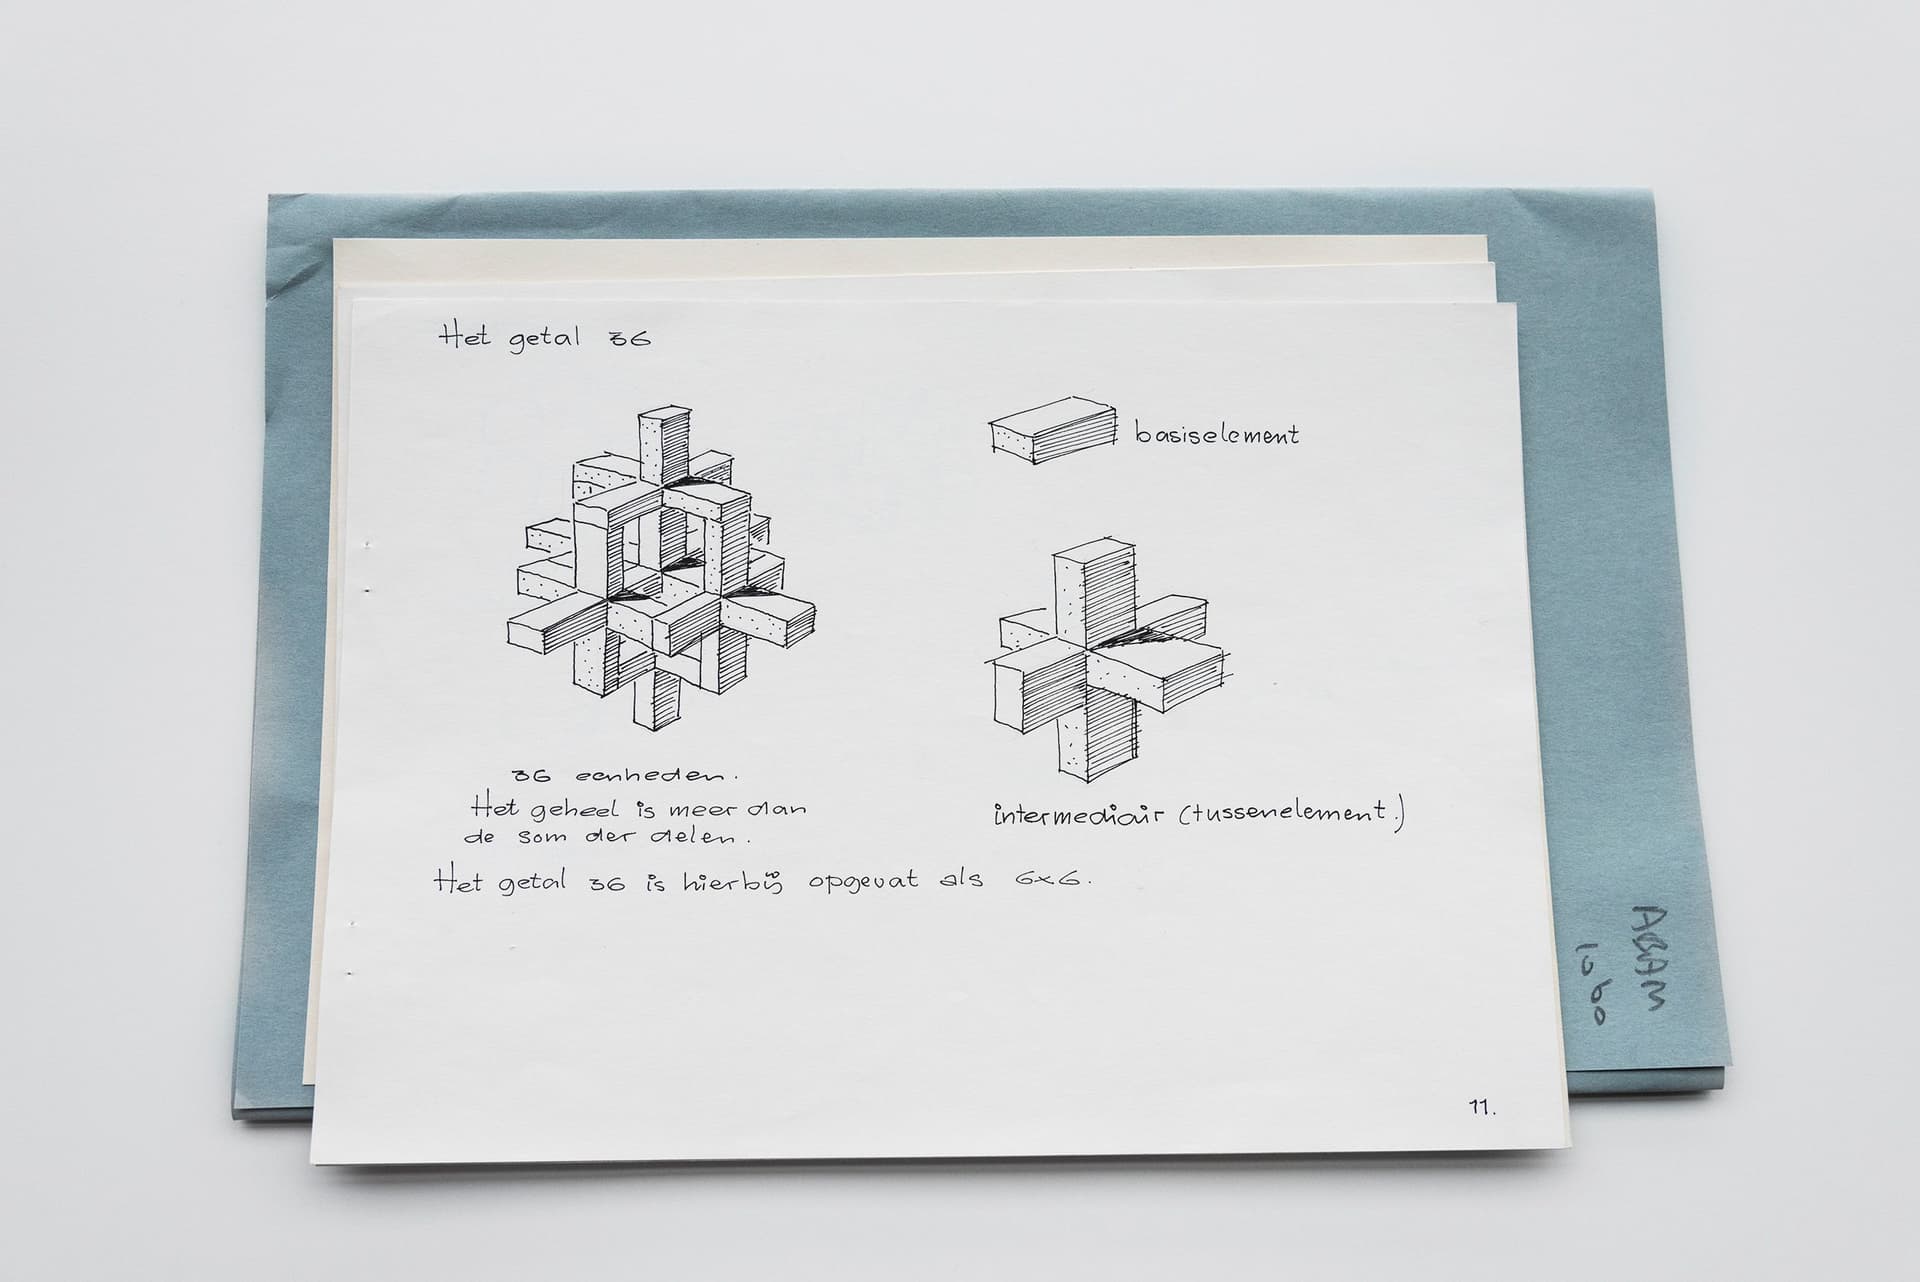 Het getal 36
basiselement
36 eenheden.
Het geheel is meer dan
de som der delen.
intermediair (tussenelement.)
Het getal 36 is hierbij opgevat als 6x6.
11.
ABAM